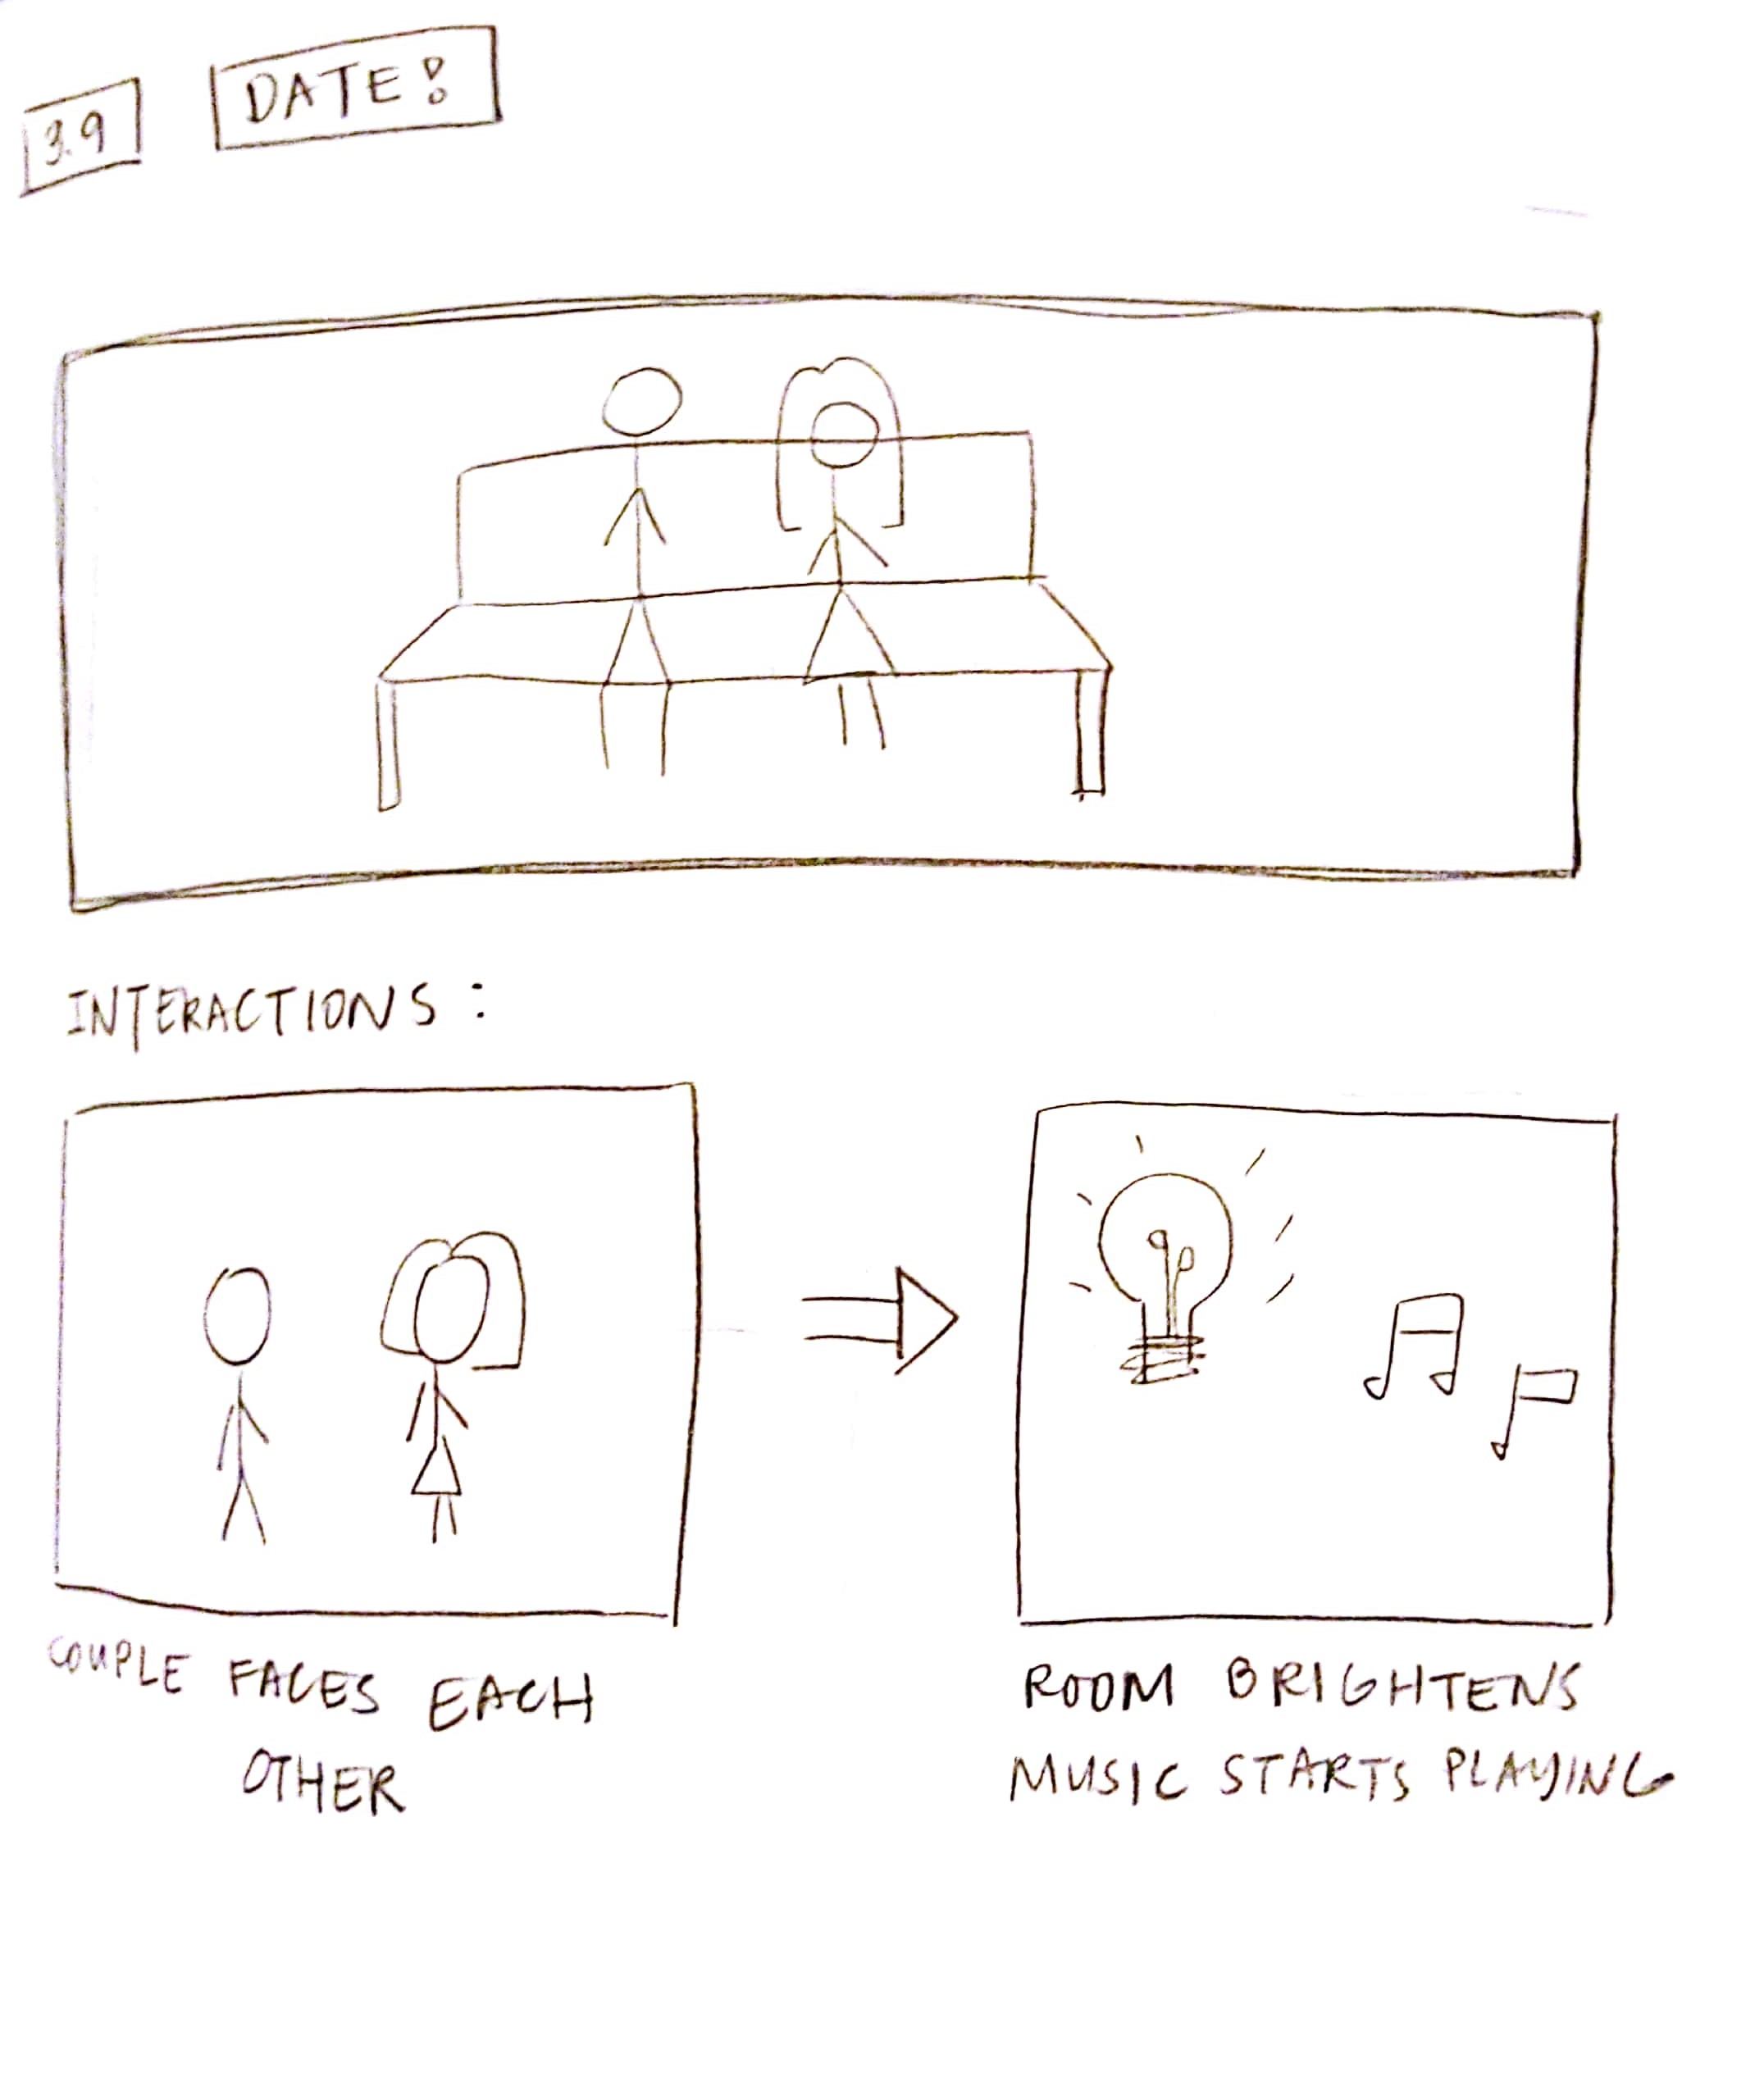 3.9
DATE!
INTERACTIONS:
COUPLE FACES EACH
OTHER
ROOM BRIGHTENS
MUSIC STARTS PLAYING